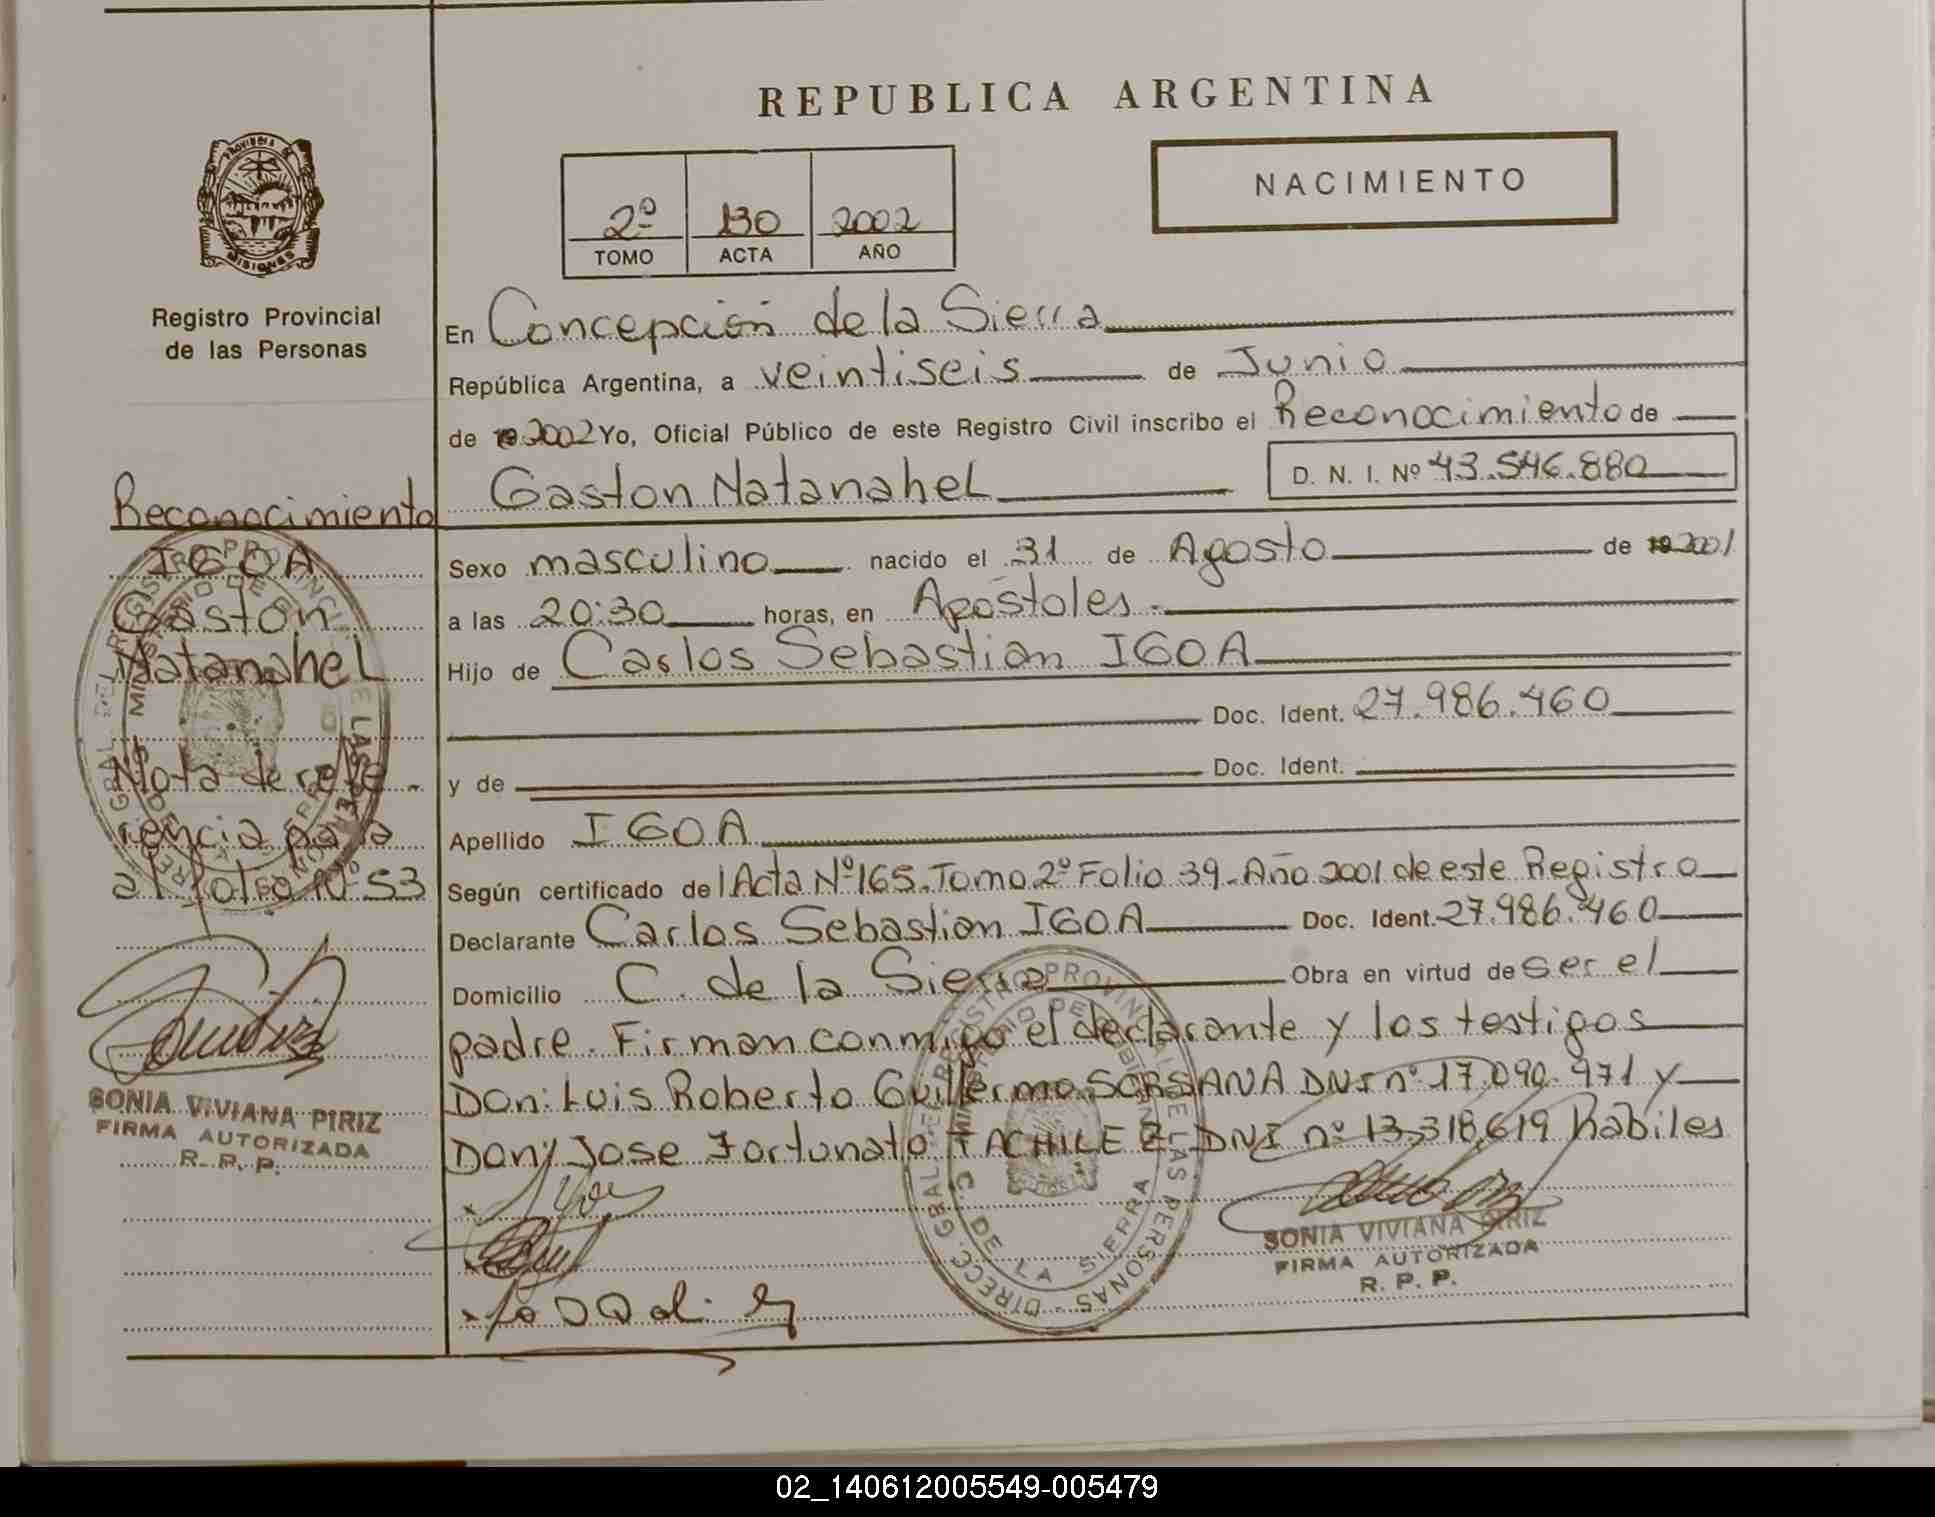 REPUBLICA ARGENTINA
NACIMIENTO
2º 130 2002
TOMO ACTA AÑO
PROVINCIA DE
MISIONES
Registro Provincial
de las Personas
En Concepción de la Sierra
República Argentina, a veintiseis de Junio
de 2002 Yo, Oficial Público de este Registro Civil inscribo el Reconocimiento de
Gaston Natanahel D. N. I. Nº 43.546.880
Sexo masculino nacido el 31 de Agosto de 2001
a las 20:30 horas, en Apostoles.-
Hijo de Carlos Sebastian IGOA
Doc. Ident. 27.986.460
y de Doc. Ident.
Apellido IGOA
Según certificado del Acta Nº 165. Tomo 2º Folio 39 - Año 2001 de este Registro
Declarante Carlos Sebastian IGOA Doc. Ident. 27.986.460
Domicilio C. de la Sierra Obra en virtud de ser el
padre. Firman conmigo el declarante y los testigos
Don: Luis Roberto Guillermo SORSANA DNI nº 17.090.971 y
Don; Jose Fortunato TACHILE Z- DNI nº 13.318,619 habiles
SONIA VIVIANA PIRIZ
FIRMA AUTORIZADA
R. P. P.
Reconocimiento
IGOA
Gaston
Natanahel
Nota de refe-
rencia pasa
al folio Nº 53
SONIA VIVIANA PIRIZ
FIRMA AUTORIZADA
R. P. P.
DIRECC. GRAL. DEL REGISTRO PROVINCIAL DE LAS PERSONAS
C. DE LA SIERRA
02_140612005549-005479